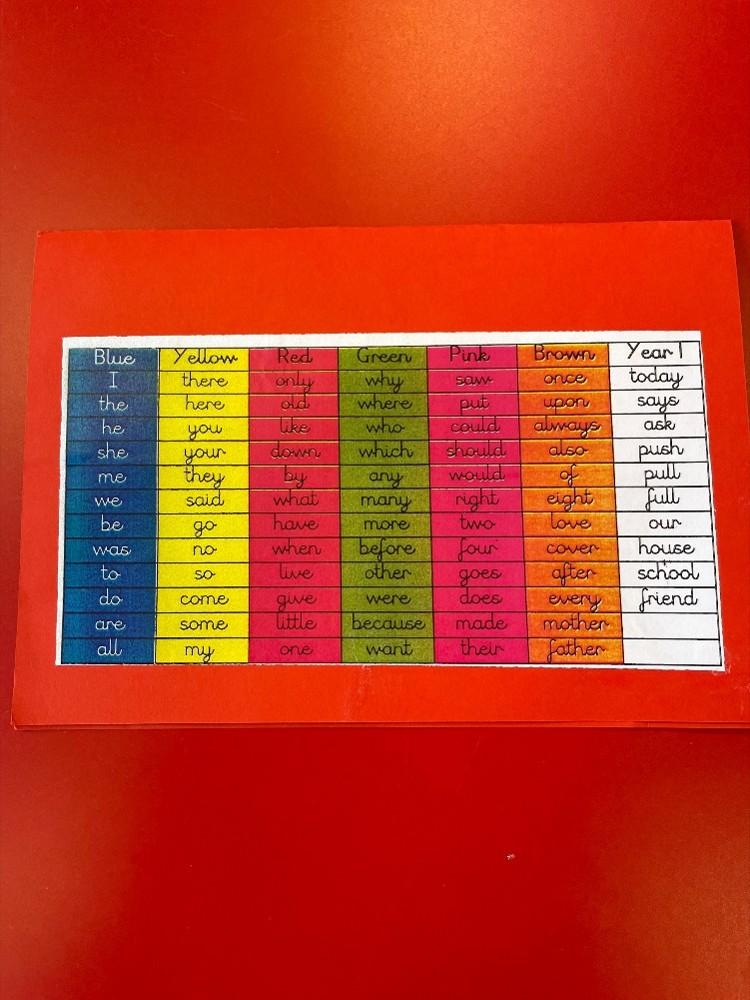 Blue Yellow Red Green Pink Brown Year 1
I there only why saw once today
the here old where put upon says
he you like who could always ask
she your down which should also push
me they by any would of pull
we said what many right eight full
be go have more two love our
was no when before four cover house
to so live other goes after school
do come give were does every friend
are some little because made mother
all my one want their father